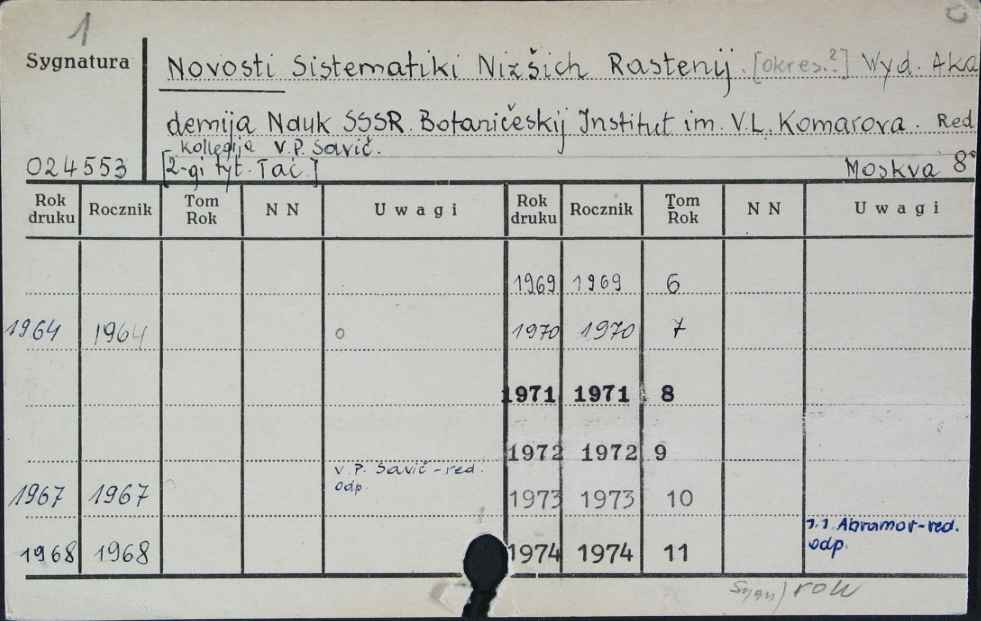 1
Sygnatura
Novosti Sistematiki Nizšich Rastenij. [okres.?] Wyd. Aka
demija Nauk SSSR. Botaničeskij Institut im. V.L. Komarova. Red
Kollegija V.P. Savič.
024553 [2-gi tyt. Tać.] Moskva 8°
Rok druku Rocznik Tom Rok NN Uwagi Rok druku Rocznik Tom Rok NN Uwagi
1969 1969 6
1964 1964 o 1970 1970 7
1971 1971 8
1972 1972 9
V.P. Savič-red.
odp.
1967 1967 1973 1973 10
I.I. Abramov-red.
odp.
1968 1968 1974 1974 11
rok